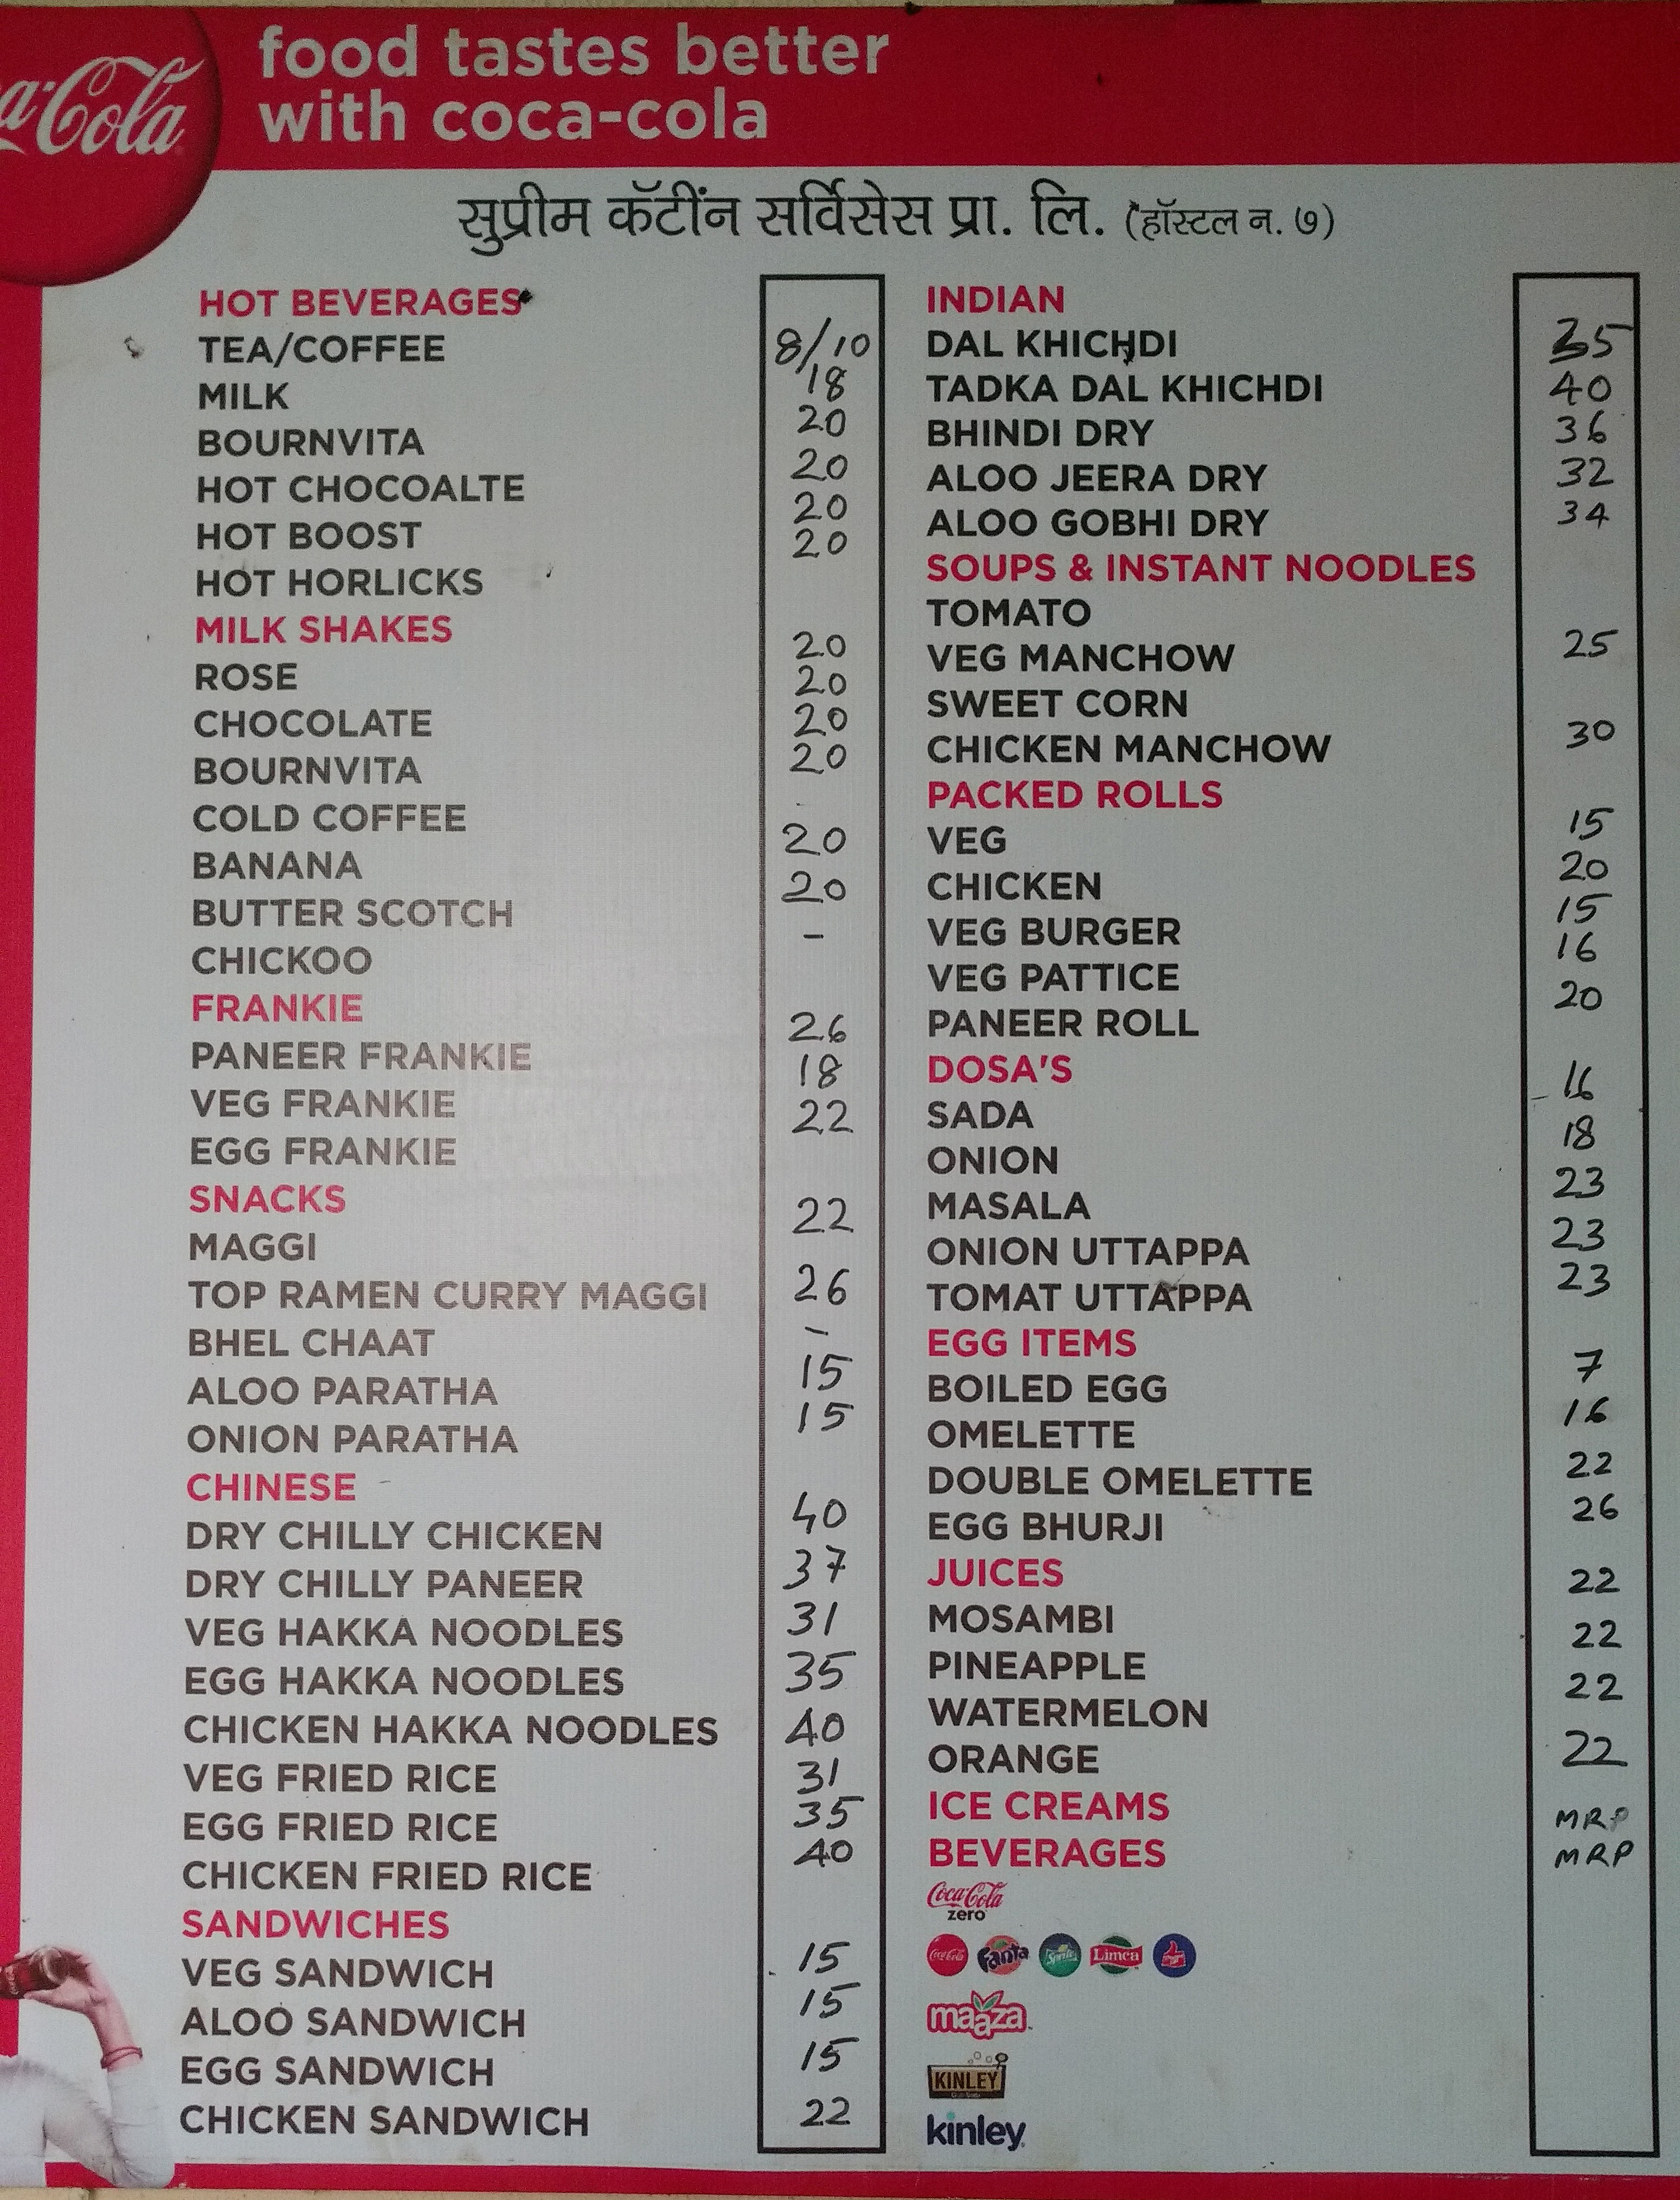 a-Cola
food tastes better
with coca-cola
सुप्रीम कॅटींन सर्विसेस प्रा. लि. (हॉस्टल न. ७)
HOT BEVERAGES
TEA/COFFEE 8/10
MILK 18
BOURNVITA 20
HOT CHOCOALTE 20
HOT BOOST 20
HOT HORLICKS 20
MILK SHAKES
ROSE 20
CHOCOLATE 20
BOURNVITA 20
COLD COFFEE 20
BANANA 20
BUTTER SCOTCH 20
CHICKOO -
FRANKIE
PANEER FRANKIE 26
VEG FRANKIE 18
EGG FRANKIE 22
SNACKS
MAGGI 22
TOP RAMEN CURRY MAGGI 26
BHEL CHAAT -
ALOO PARATHA 15
ONION PARATHA 15
CHINESE
DRY CHILLY CHICKEN 40
DRY CHILLY PANEER 37
VEG HAKKA NOODLES 31
EGG HAKKA NOODLES 35
CHICKEN HAKKA NOODLES 40
VEG FRIED RICE 31
EGG FRIED RICE 35
CHICKEN FRIED RICE 40
SANDWICHES
VEG SANDWICH 15
ALOO SANDWICH 15
EGG SANDWICH 15
CHICKEN SANDWICH 22
INDIAN
DAL KHICHDI 35
TADKA DAL KHICHDI 40
BHINDI DRY 36
ALOO JEERA DRY 32
ALOO GOBHI DRY 34
SOUPS & INSTANT NOODLES
TOMATO
VEG MANCHOW 25
SWEET CORN
CHICKEN MANCHOW 30
PACKED ROLLS
VEG 15
CHICKEN 20
VEG BURGER 15
VEG PATTICE 16
PANEER ROLL 20
DOSA'S
SADA 16
ONION 18
MASALA 23
ONION UTTAPPA 23
TOMAT UTTAPPA 23
EGG ITEMS
BOILED EGG 7
OMELETTE 16
DOUBLE OMELETTE 22
EGG BHURJI 26
JUICES
MOSAMBI 22
PINEAPPLE 22
WATERMELON 22
ORANGE 22
ICE CREAMS MRP
BEVERAGES MRP
Coca-Cola
zero
Coca-Cola Fanta Sprite Limca
maaza
KINLEY
kinley